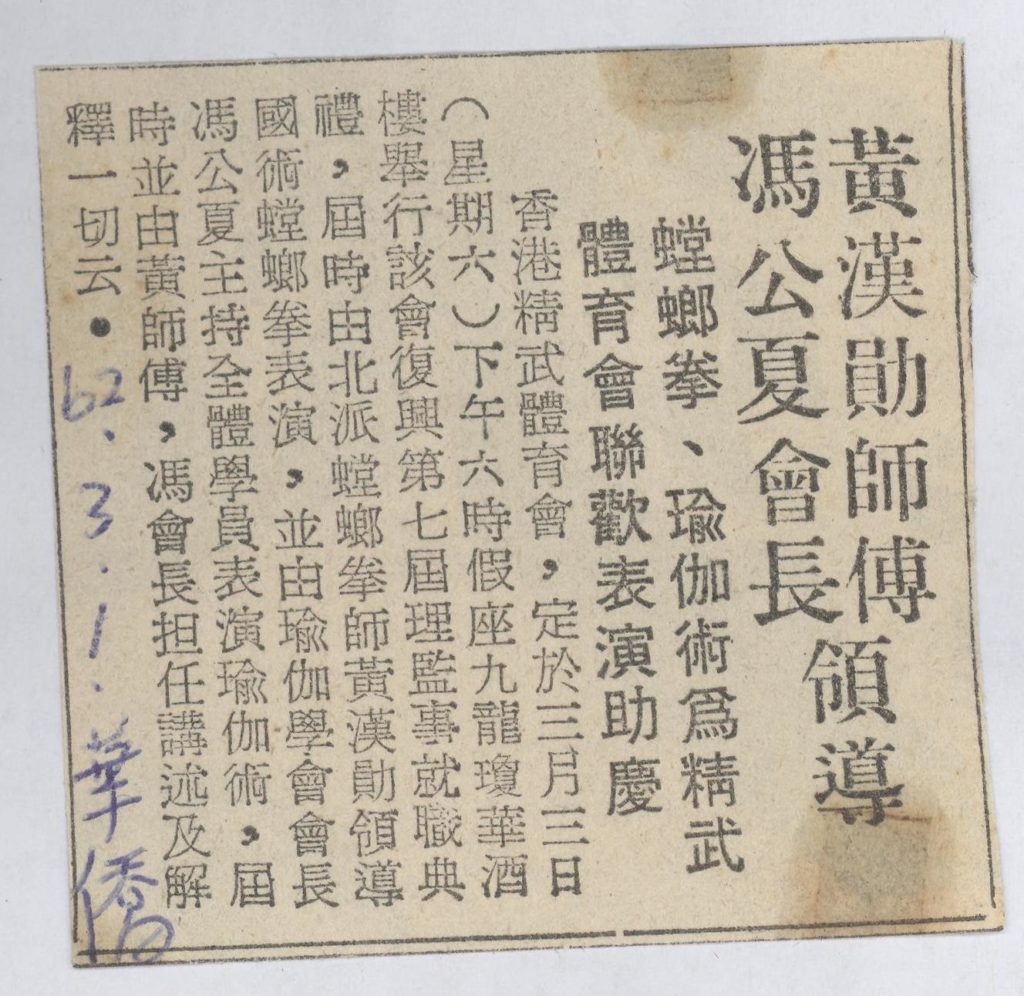 黃漢勛師傅領導
馮公夏會長
螳螂拳、瑜伽術爲精武
體育會聯歡表演助慶
香港精武體育會，定於三月三日
（星期六）下午六時假座九龍瓊華酒
樓舉行該會復興第七屆理監事就職典
禮，屆時由北派螳螂拳師黃漢勛領導
國術螳螂拳表演，並由瑜伽學會會長
馮公夏主持全體學員表演瑜伽術，屆
時並由黃師傅，馮會長担任講述及解
釋一切云●
62.3.1.華僑